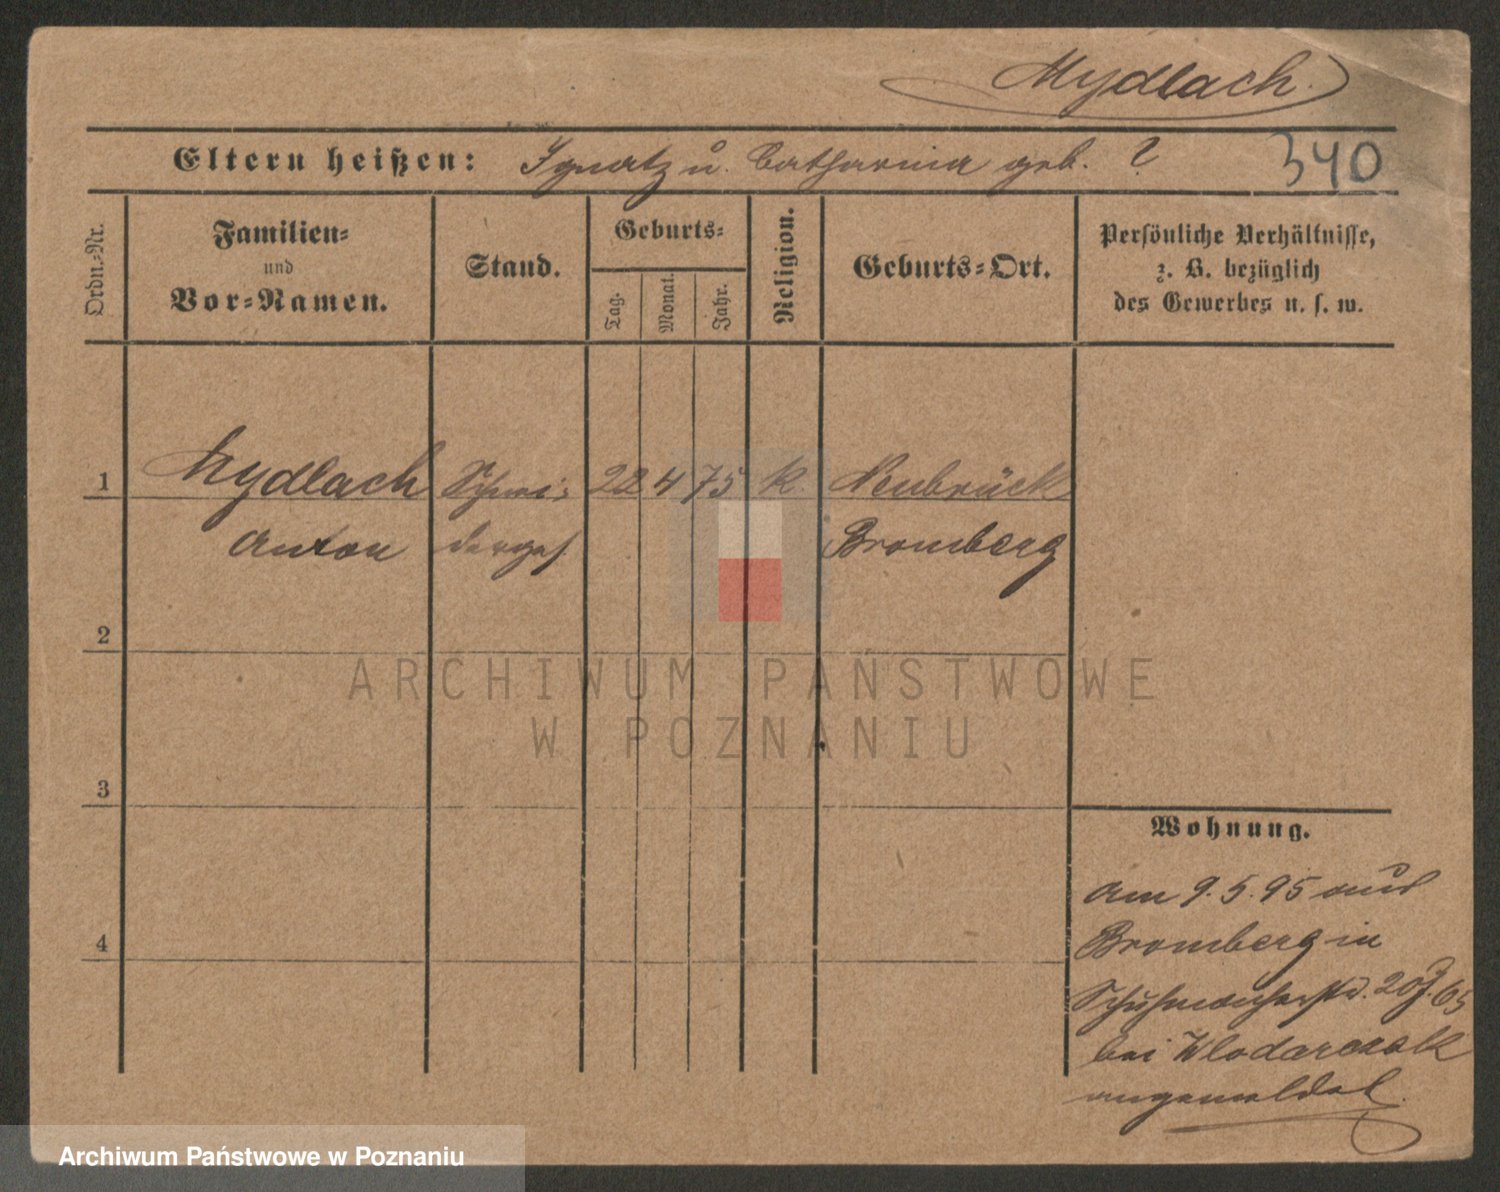 Mydlach.
Eltern heißen: Ignatz u. Catharina geb. ?
340
Ordn.-Nr.
Familien-
und
Vor-Namen.
Stand.
Geburts-
Tag.
Monat.
Jahr.
Religion.
Geburts-Ort.
Persönliche Verhältnisse,
z. B. bezüglich
des Gewerbes u. s. w.
1 Mydlach Schnei- 22 4 75 K. Neubrück
Anton derges. Bromberg
2
3
4
Wohnung.
Am 9.5.95 aus
Bromberg in
Schuhmacherstr. 20
bei Wlodarczak
angemeldet.
ARCHIWUM PAŃSTWOWE
W POZNANIU
Archiwum Państwowe w Poznaniu